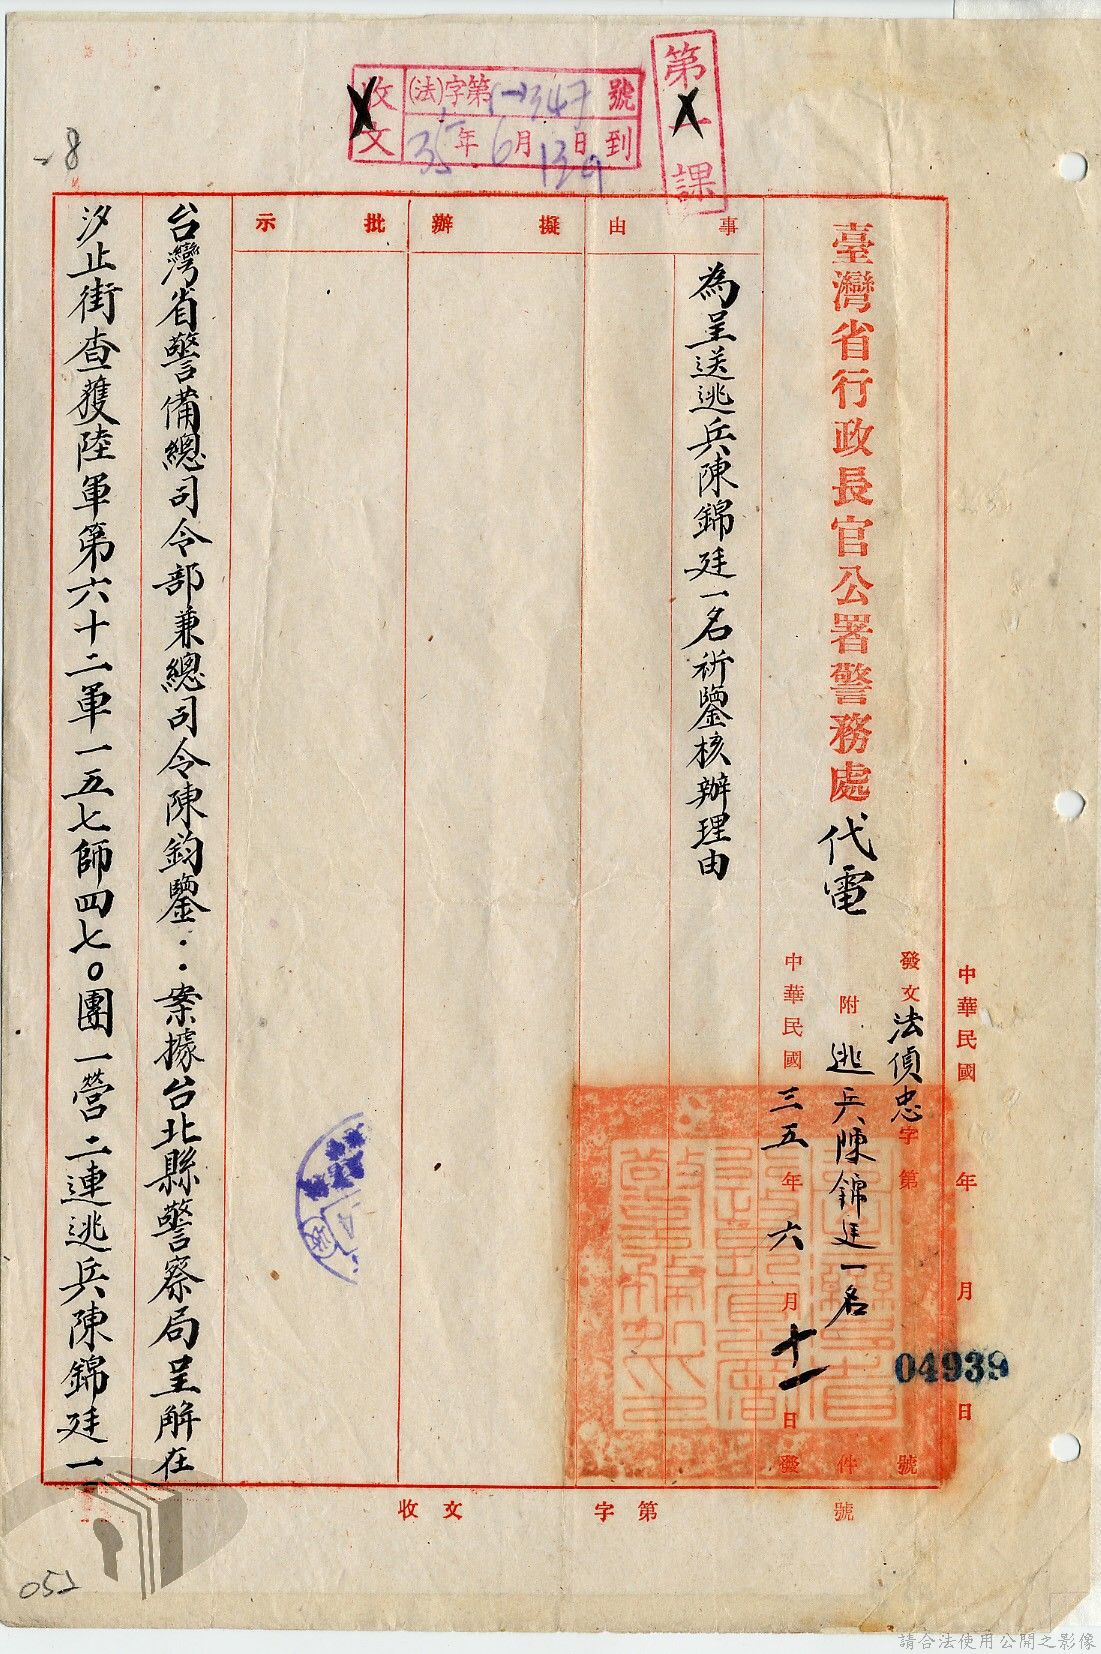 第一課
收文
(法)字第(一)347號
35年6月13日到
8
臺灣省行政長官公署警務處代電
中華民國 年 月 日
發文法偵忠字第04939號
附 逃兵陳錦廷一名 件
中華民國三五年六月十一日發
事由
為呈送逃兵陳錦廷一名祈鑒核辦理由
擬辦
批示
台灣省警備總司令部兼總司令陳鈞鑒：案據台北縣警察局呈解在
汐止街查獲陸軍第六十二軍一五七師四七〇團一營二連逃兵陳錦廷一
收文 字第 號
052
請合法使用公開之影像